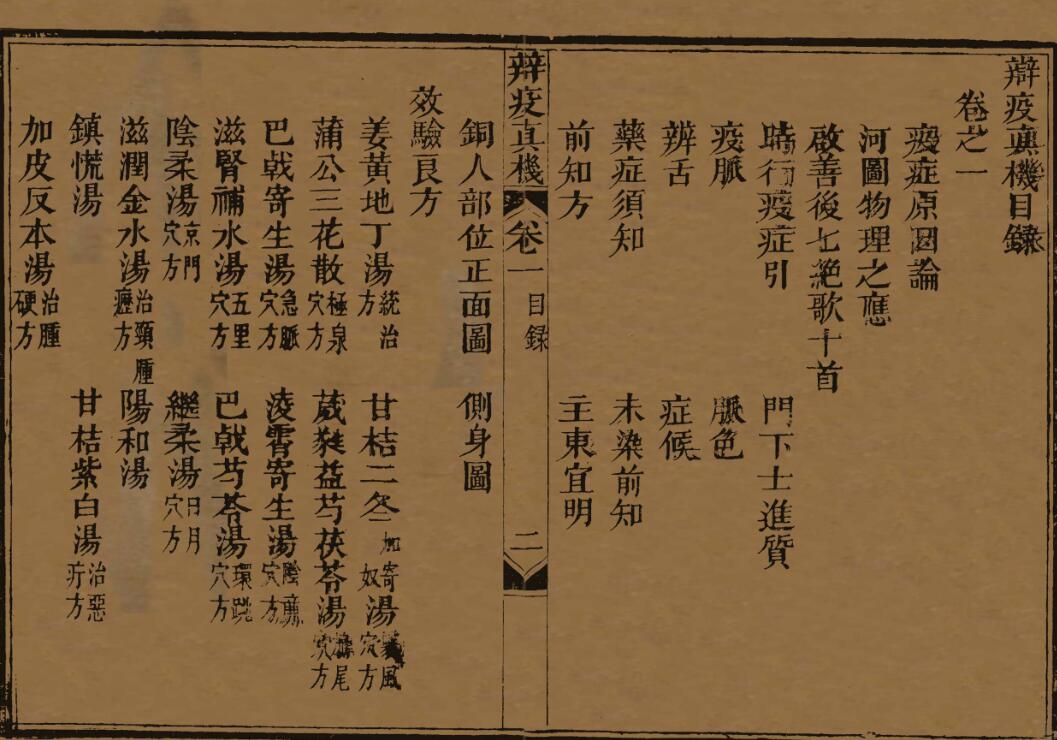 辯疫真機目錄
卷之一
疫症原因論
河圖物理之應
啟善後七絕歌十首
時行疫症引 門下士進質
疫脈 脈色
辨舌 症候
藥症須知 未染前知
前知方 主東宜明
辯疫真機 卷一 目錄 二
銅人部位正面圖 側身圖
效驗良方
姜黃地丁湯統治方 甘桔二冬加寄奴湯翳風穴方
蒲公三花散極泉穴方 葳蕤益芍茯苓湯鳩尾穴方
巴戟寄生湯急脈穴方 凌霄寄生湯陰廉穴方
滋腎補水湯五里穴方 巴戟芍苓湯環跳穴方
陰柔湯京門穴方 繼柔湯日月穴方
滋潤金水湯治頸腫癧方 陽和湯
鎮慌湯 甘桔紫白湯治惡疔方
加皮反本湯治腫硬方